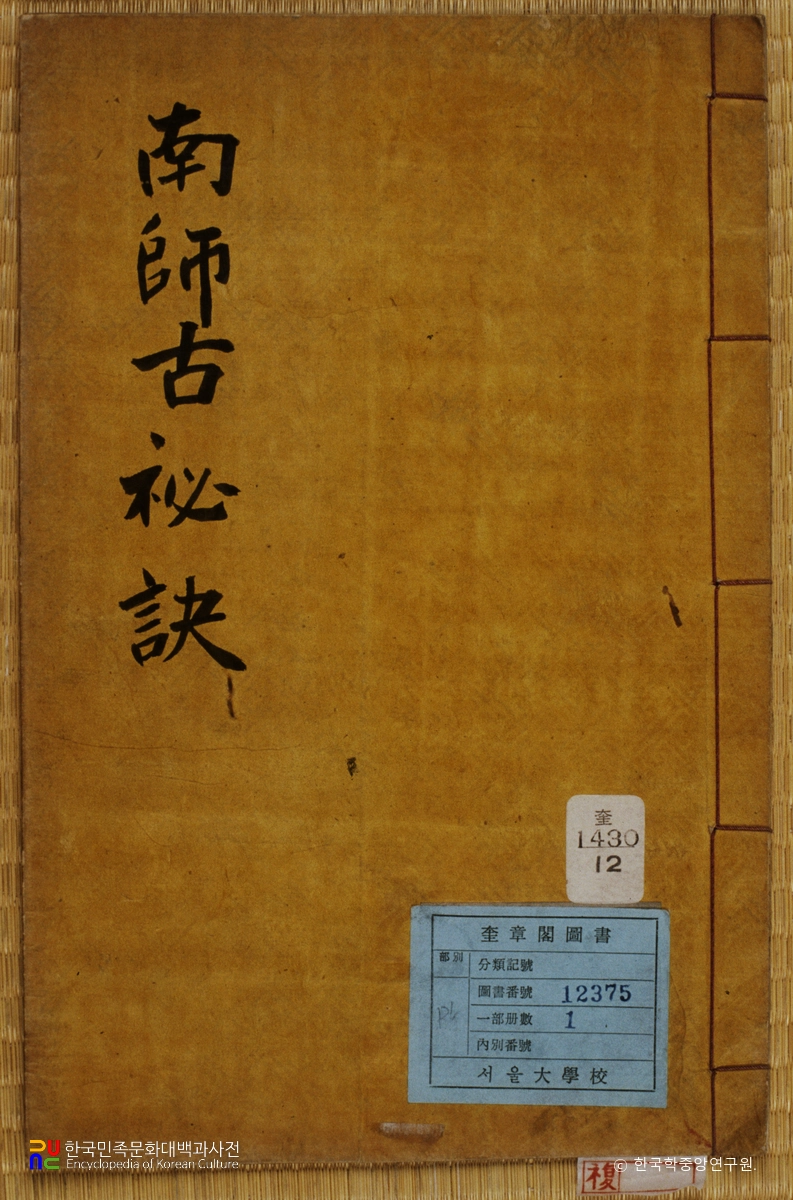 南師古祕訣
奎
1430
12
奎章閣圖書
部別
分類記號
圖書番號 12375
一部册數 1
內別番號
서울大學校
한국민족문화대백과사전
Encyclopedia of Korean Culture
複
© 한국학중앙연구원